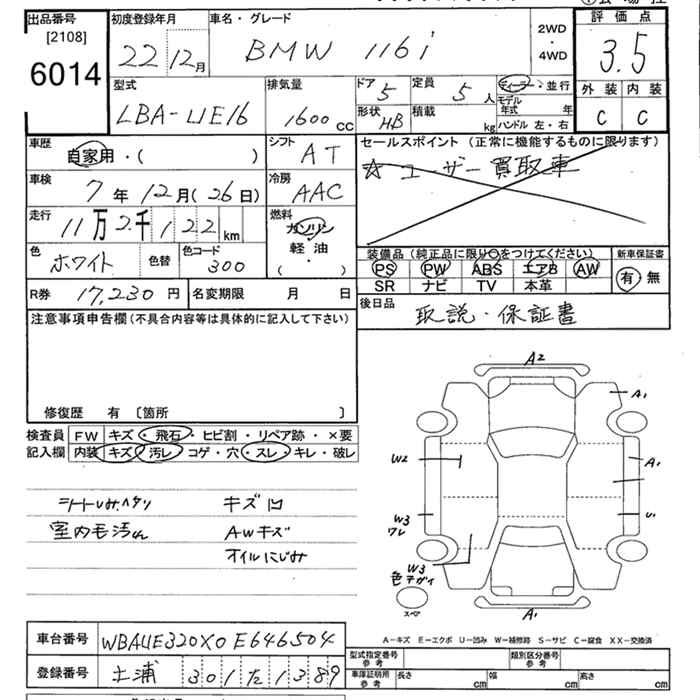 出品番号
[2108]
6014
初度登録年月
22 12月
車名・グレード
BMW 116i
2WD
・
4WD
評価点
3.5
外装 内装
C C
型式
LBA-UE16
排気量
1600 cc
ドア 5
形状 HB
定員 5 人
積載 kg
ディーラー・並行
モデル年式 年
ハンドル 左・右
車歴
自家用・( )
シフト AT
セールスポイント (正常に機能するものに限ります)
☆ユーザー買取車
車検
7年12月(26日)
冷房 AAC
走行
11万2千122km
燃料
ガソリン
・
軽油
( )
色
ホワイト
色替
色コード
300
装備品 (純正品に限り○をつけてください)
PS PW ABS エアB AW
SR ナビ TV 本革
新車保証書
有 無
R券 17,230円
名変期限 月 日
後日品
取説・保証書
注意事項申告欄 (不具合内容等は具体的に記入して下さい)
修復歴 有 〔箇所 〕
検査員
記入欄
FW キズ・飛石・ヒビ割・リペア跡・×要
内装 キズ・汚レ・コゲ・穴・スレ・キレ・破レ
キズ凹
室内毛汚れ
AWキズ
オイルにじみ
A2
A1
W2
A1
W3
ワレ
U1
W3
色チガイ
スペア
A1
A-キズ E-エクボ U-凹み W-補修跡 S-サビ C-腐食 XX-交換済
車台番号 WBAUE320X0E646504
登録番号 土浦 301 た 1389
型式指定番号
参考
類別区分番号
参考
車庫証明用
参考
長さ cm 幅 cm 高さ cm